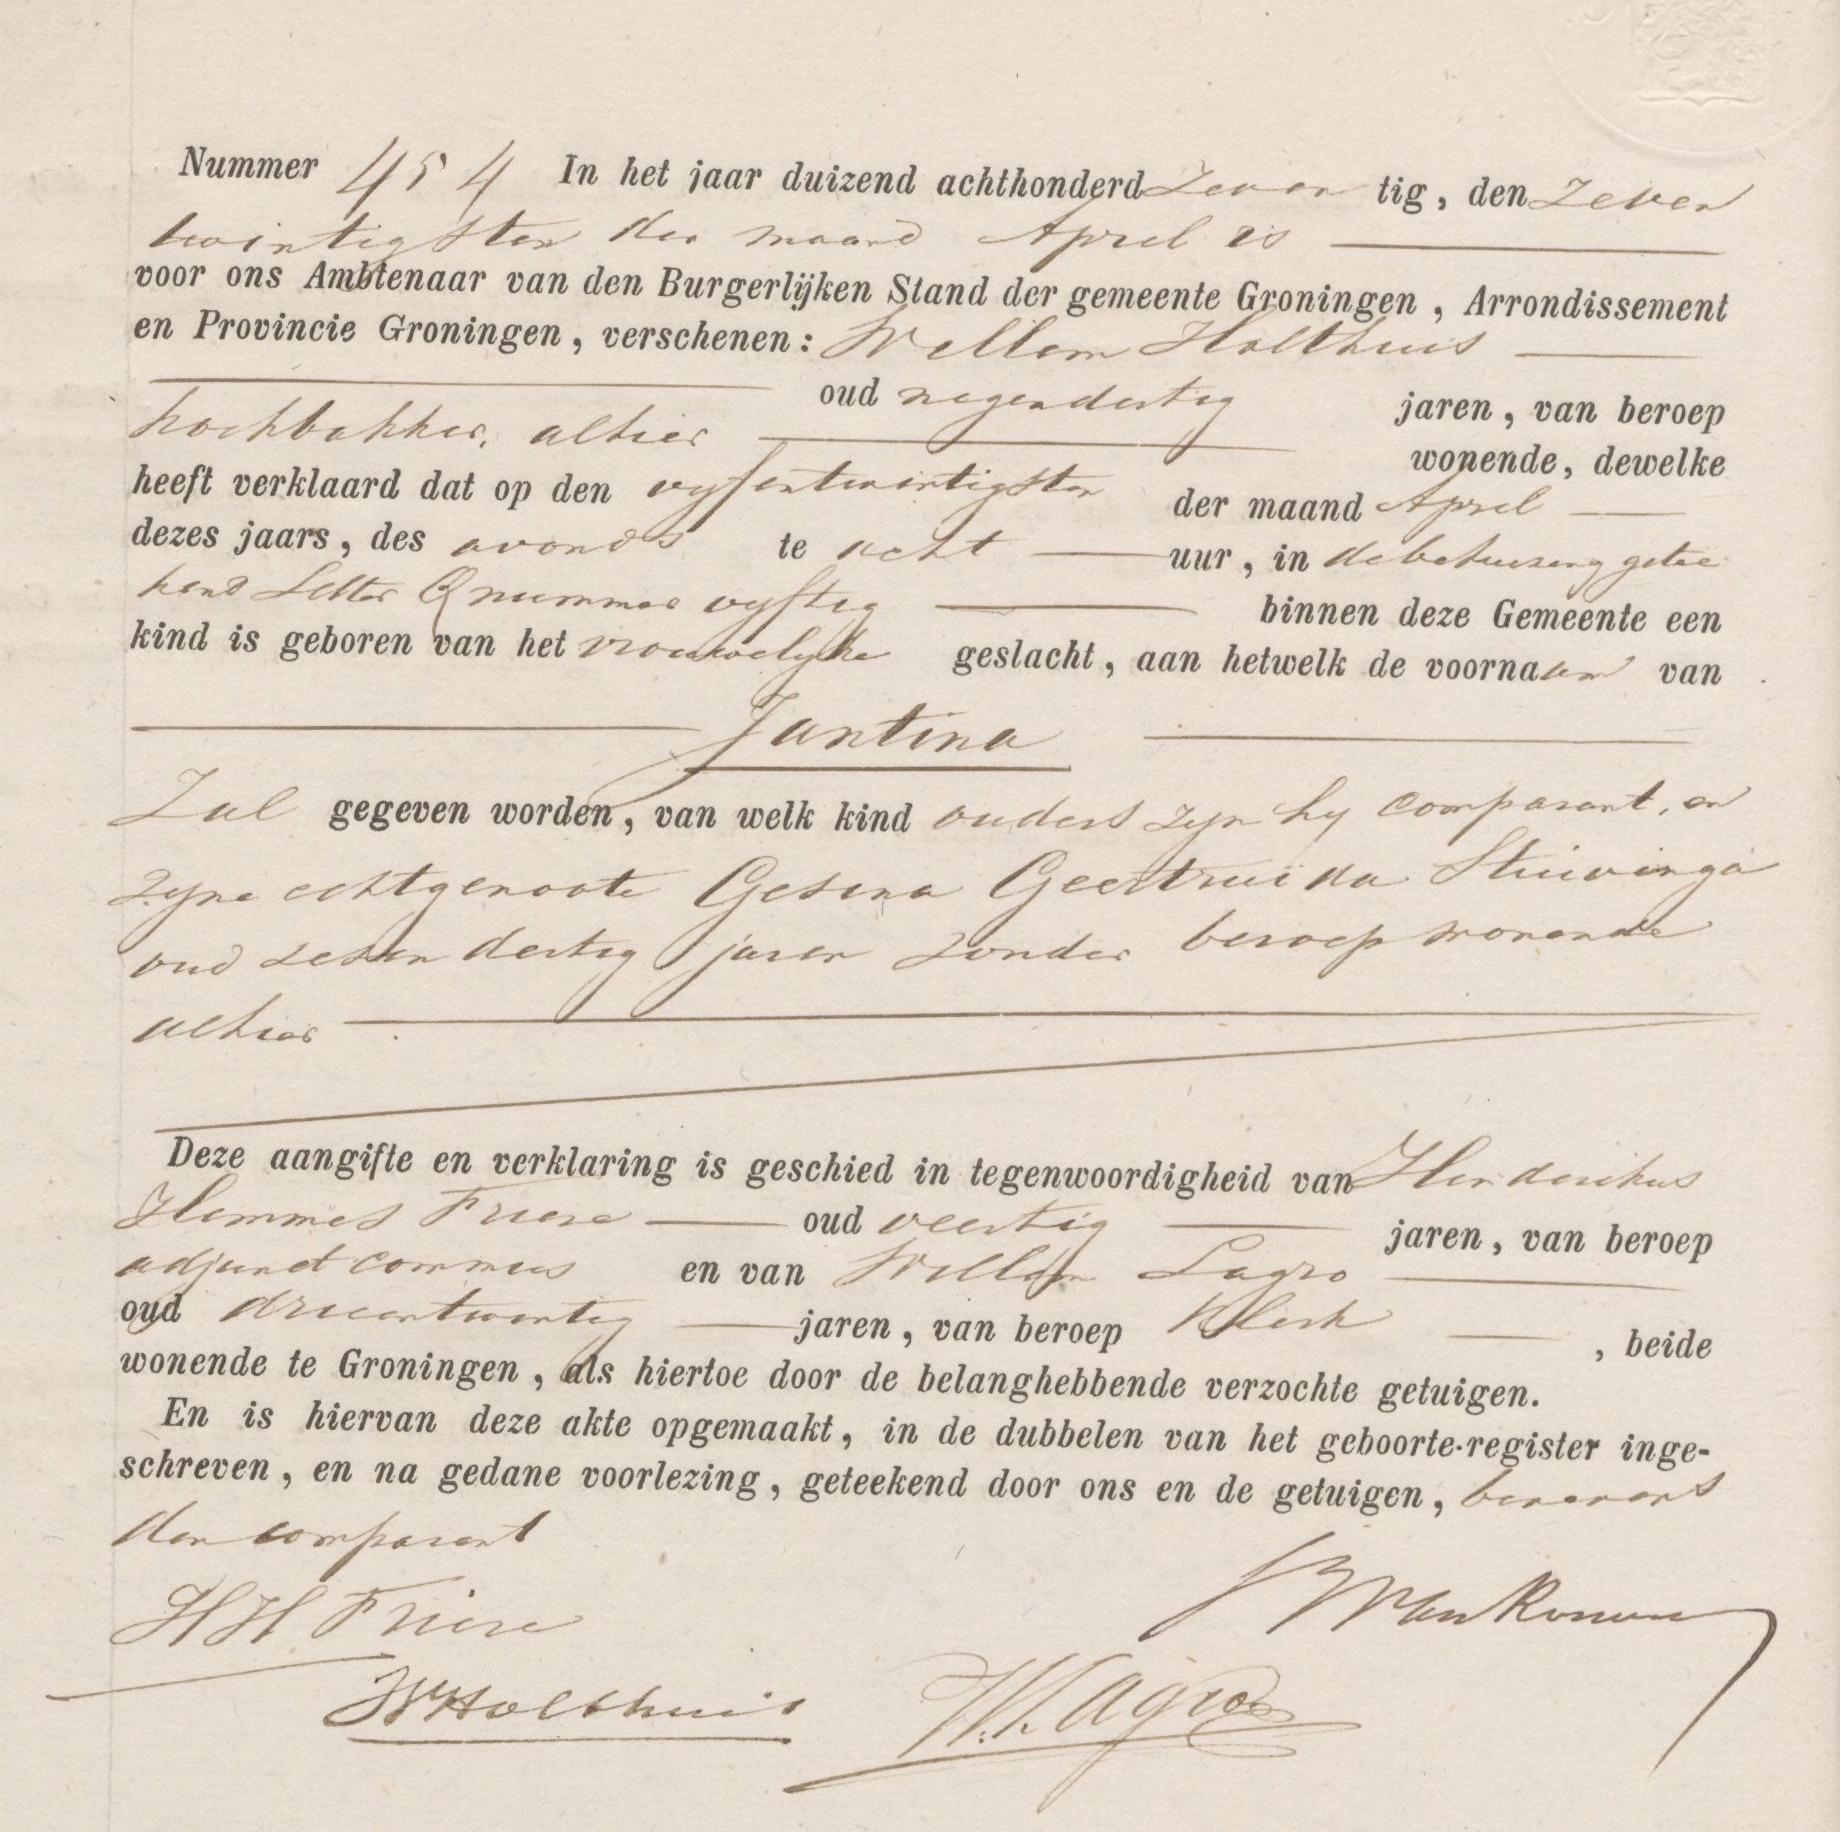 Nummer 454 In het jaar duizend achthonderd Zeven tig, den Zeven
twintigsten der maand April is
voor ons Ambtenaar van den Burgerlijken Stand der gemeente Groningen, Arrondissement
en Provincie Groningen, verschenen: Willem Holthuis
oud negendertig jaren, van beroep
koekbakker, alhier wonende, dewelke
heeft verklaard dat op den vyfentwintigsten der maand April
dezes jaars, des avonds te acht uur, in de behuizing gete
kend Letter Q nummer vyftig binnen deze Gemeente een
kind is geboren van het vrouwelyke geslacht, aan hetwelk de voornaam van
Jantina
Zal gegeven worden, van welk kind ouders zyn hy comparant, en
zyne echtgenoote Gesina Geertruida Stuivinga
oud zesendertig jaren zonder beroep wonende
alhier
Deze aangifte en verklaring is geschied in tegenwoordigheid van Henderikus
Hemmes Friese oud veertig jaren, van beroep
adjunct commies en van Willem Lagro
oud drieentwintig jaren, van beroep Klerk, beide
wonende te Groningen, als hiertoe door de belanghebbende verzochte getuigen.
En is hiervan deze akte opgemaakt, in de dubbelen van het geboorte-register inge-
schreven, en na gedane voorlezing, geteekend door ons en de getuigen, benevens
den comparant
HH Friese
W Holthuis W. Lagro